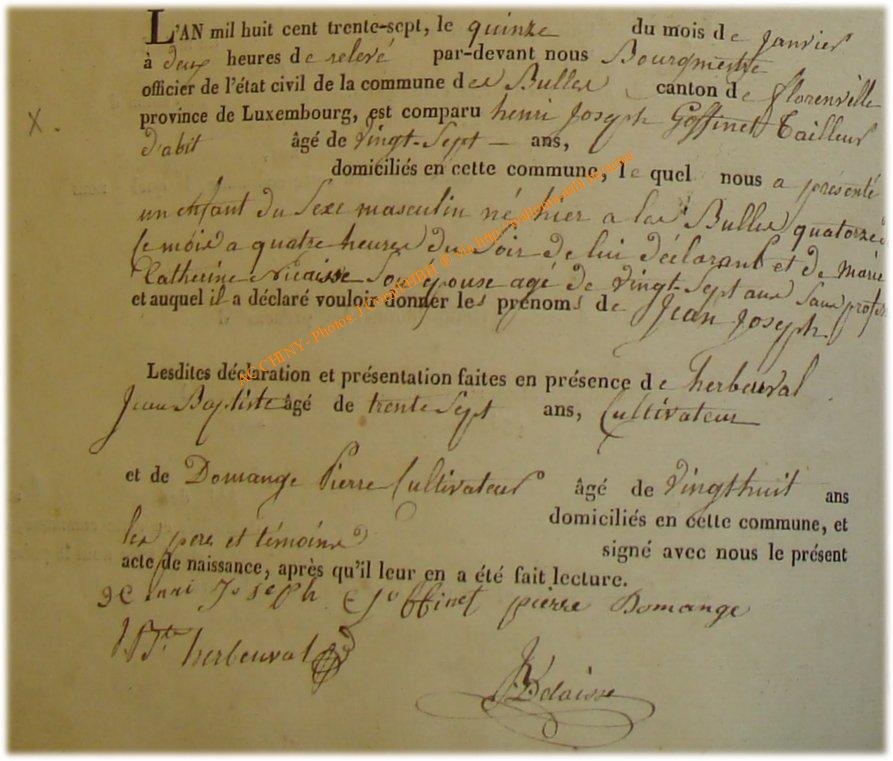 L'AN mil huit cent trente-sept, le quinze du mois de janvier
à deux heures de relevé par-devant nous Bourgmestre
officier de l'état civil de la commune des Bulles canton de florenville
province de Luxembourg, est comparu henri Joseph Goffinet Tailleur
d'abit âgé de vingt-sept ans,
domiciliés en cette commune, le quel nous a présenté
un enfant du sexe masculin né hier a les Bulles quatorze
ce mois a quatre heures du soir de lui déclarant et de marie
Catherine Nicaisse son épouse agé de vingt-sept ans sans
et auquel il a déclaré vouloir donner les prénoms de Jean Joseph
Lesdites déclaration et présentation faites en présence de herbeuval
Jean Baptiste âgé de trente sept ans, Cultivateur
et de Domange Pierre Cultivateur âgé de vingthuit ans
domiciliés en cette commune, et
les pere et témoins signé avec nous le présent
acte de naissance, après qu'il leur en a été fait lecture.
henri Joseph Goffinet pierre Domange
herbeuval
X.
AC CHINY - Photos